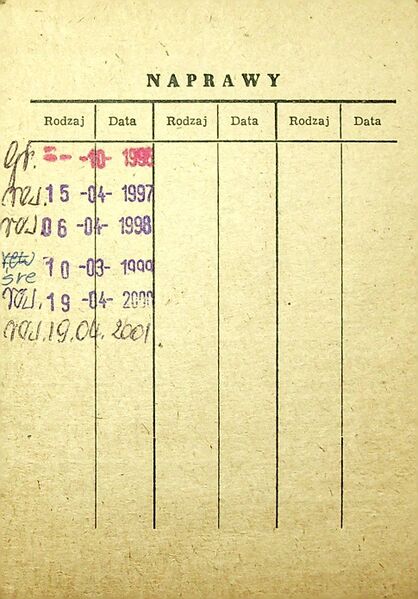 NAPRAWY
Rodzaj Data Rodzaj Data Rodzaj Data
-10- 1996
rew. 15 -04- 1997
rew. 06 -04- 1998
rew 10 -03- 1999
śre
rew. 19 -04- 2000
rew. 19.04.2001